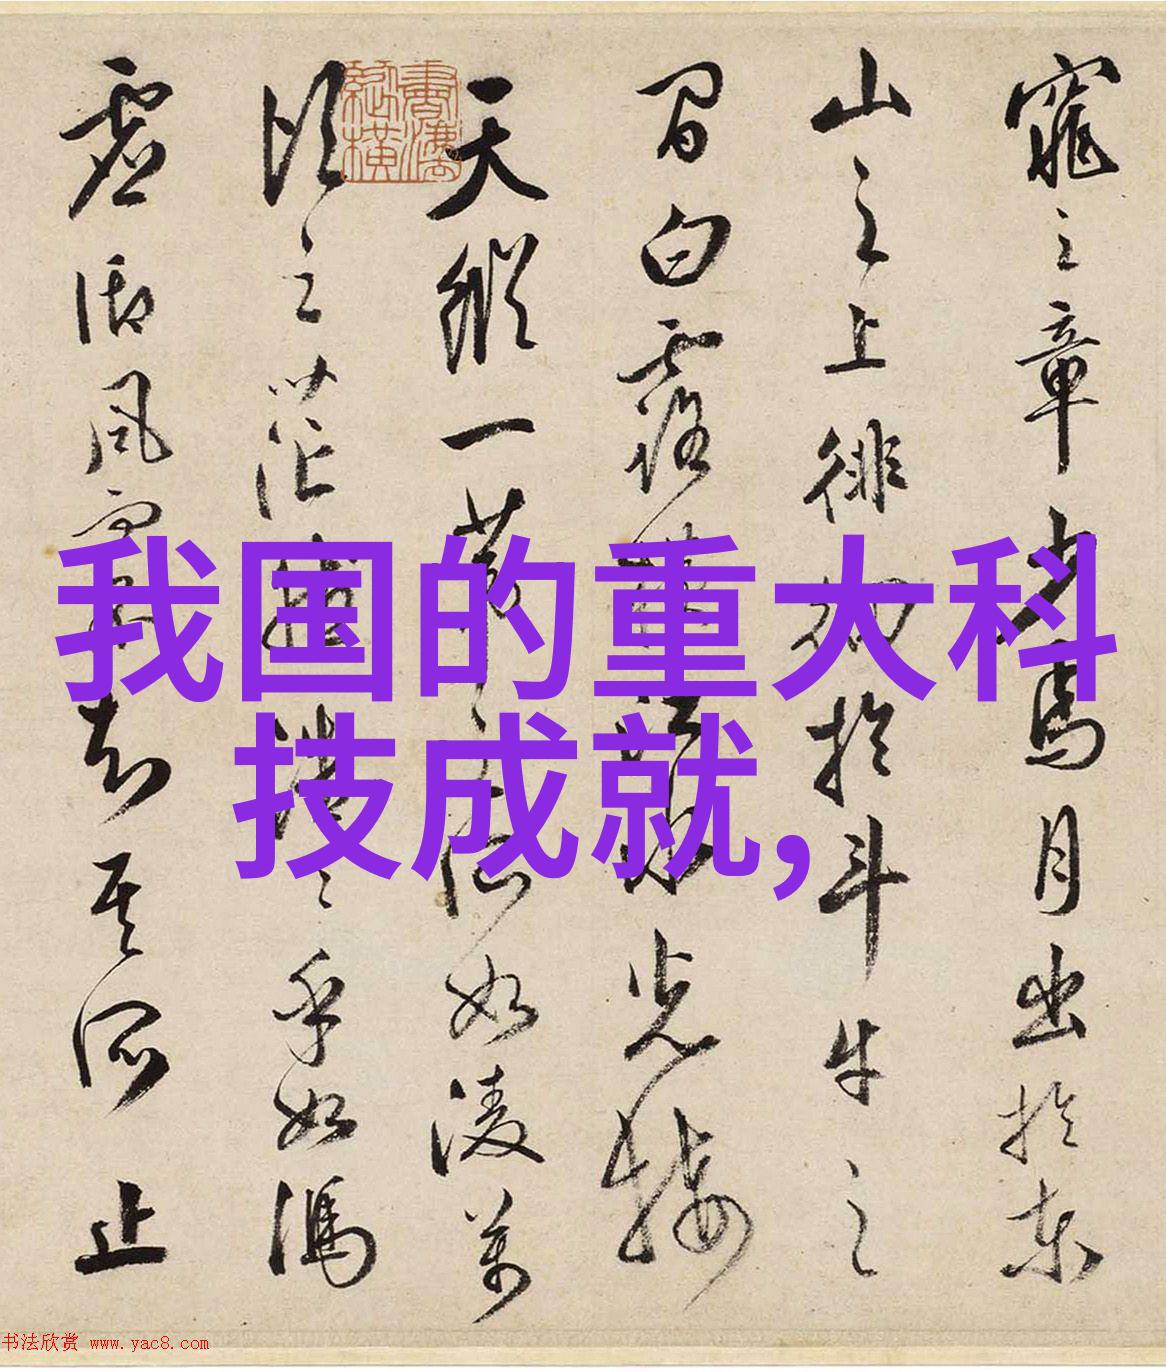 窕之章少焉月出於東
山之上徘徊於斗牛之
間白露橫江水光接
天縱一葦之所如凌萬
頃之茫然浩浩乎如馮
虛御風而不知其所止
我国的重大科
技成就,
书法欣赏 www.yac8.com